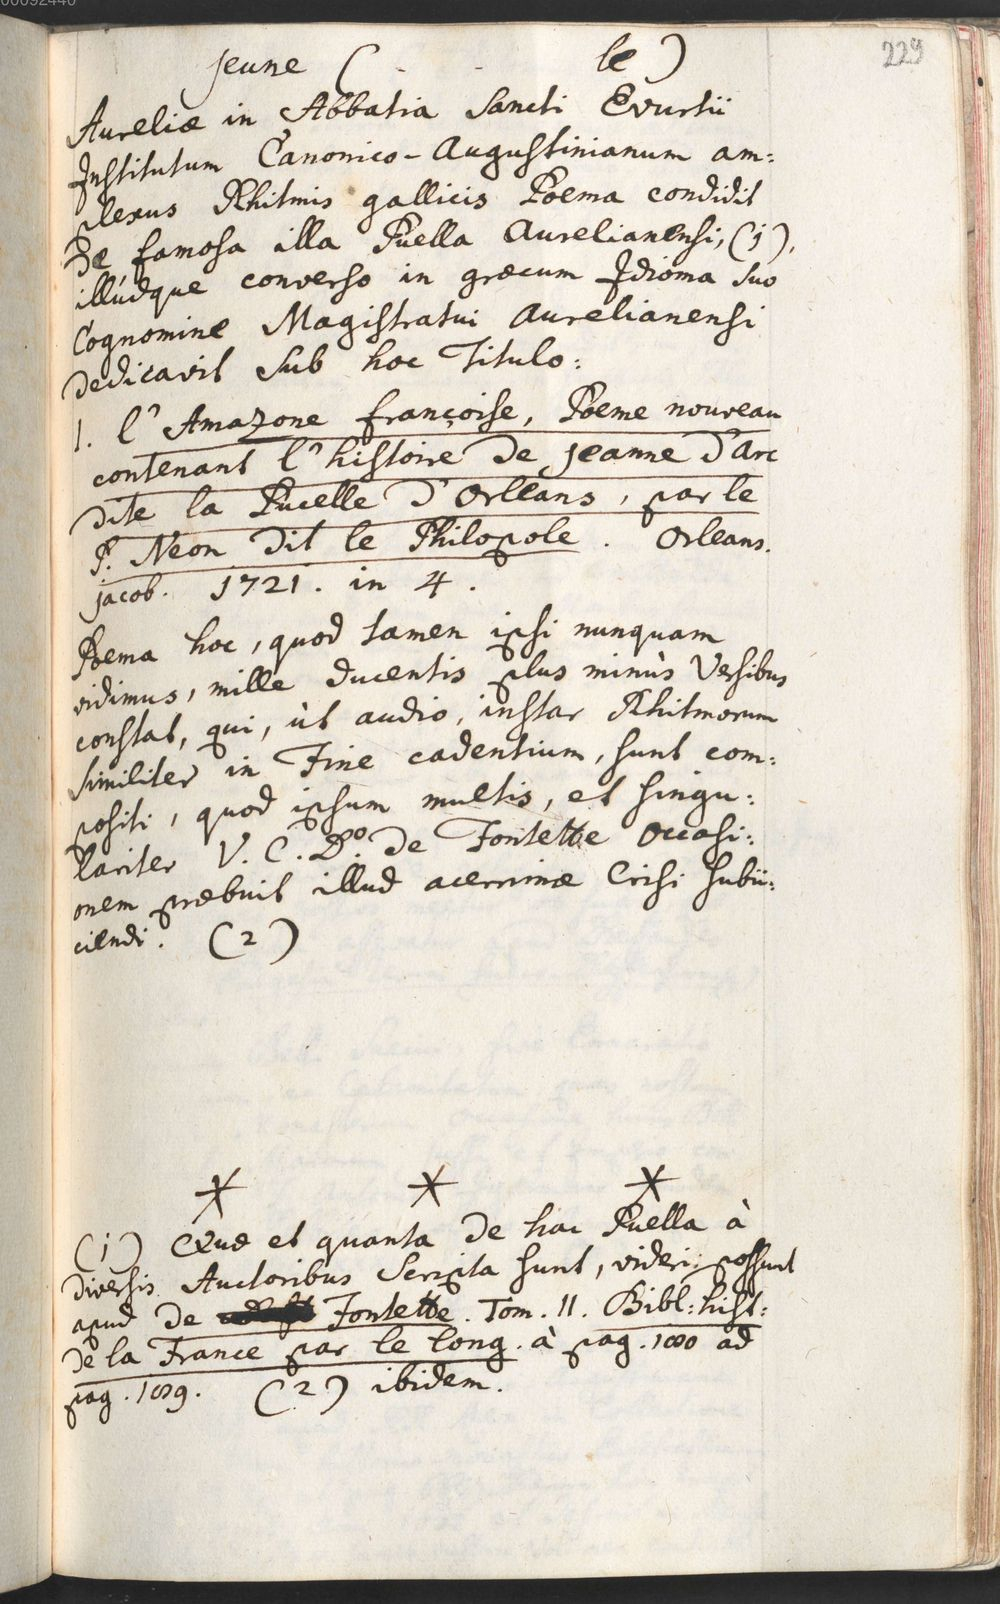 229
jeune ( - - le )
Aureliæ in Abbatia Sancti Evurtii
Institutum Canonico-Augustinianum am:
plexus Rhitmis gallicis Poema condidit
de famosa illa Puella Aurelianensi, (1),
illúdque converso in græcum Idioma suo
Cognomine Magistratui Aurelianensi
dedicavit sub hoc Titulo:
1. l'Amazone françoise, Poeme nouveau
contenant l'histoire de jeanne d'Arc
dite la Pucelle d'Orleans, par le
P. Neon dit le Philopole. Orleans.
jacob. 1721. in 4.
Poema hoc, quod tamen ipsi nunquam
vidimus, mille ducentis plus minùs Versibus
constat, qui, ùt audio, instar Rhitmorum
similiter in Fine cadentium, sunt com:
positi, quod ipsum multis, et singu:
lariter V. C. Do. de Fontette occasi:
onem præbuit illud acerrimæ Crisi subii:
ciendi. (2)
(1) Quæ et quanta de hac Puella à
diversis Auctoribus Scripta sunt, videri possunt
apud De Fontette. Tom. II. Bibl: hist:
de la France par le long. à pag. 180 ad
pag. 189. (2) ibidem.